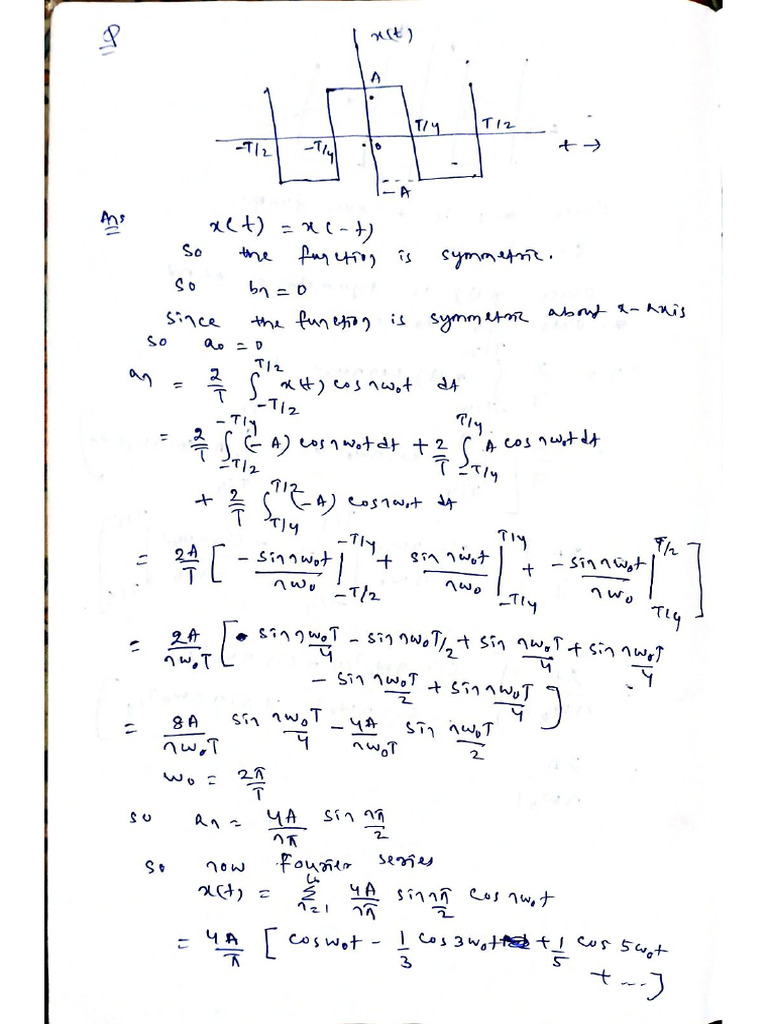 P
x(t)
A
T/4 T/2
-T/2 -T/4 0 t →
-A
Ans x(t) = x(-t)
So the function is symmetric.
So bn = 0
Since the function is symmetric about x-axis
So a0 = 0
an = 2/T ∫_{-T/2}^{T/2} x(t) cos nw₀t dt
= 2/T ∫_{-T/2}^{-T/4} (-A) cos nw₀t dt + 2/T ∫_{-T/4}^{T/4} A cos nw₀t dt
+ 2/T ∫_{T/4}^{T/2} (-A) cos nw₀t dt
= 2A/T [ - sin nw₀t/nw₀ |_{-T/2}^{-T/4} + sin nw₀t/nw₀ |_{-T/4}^{T/4} + - sin nw₀t/nw₀ |_{T/4}^{T/2} ]
= 2A/nw₀T [ sin nw₀T/4 - sin nw₀T/2 + sin nw₀T/4 + sin nw₀T/4
- sin nw₀T/2 + sin nw₀T/4 ]
= 8A/nw₀T sin nw₀T/4 - 4A/nw₀T sin nw₀T/2
w₀ = 2π/T
so an = 4A/nπ sin nπ/2
So now Fourier series
x(t) = Σ_{n=1}^{∞} 4A/nπ sin nπ/2 cos nw₀t
= 4A/π [ cos w₀t - 1/3 cos 3w₀t + 1/5 cos 5w₀t
+ ---]